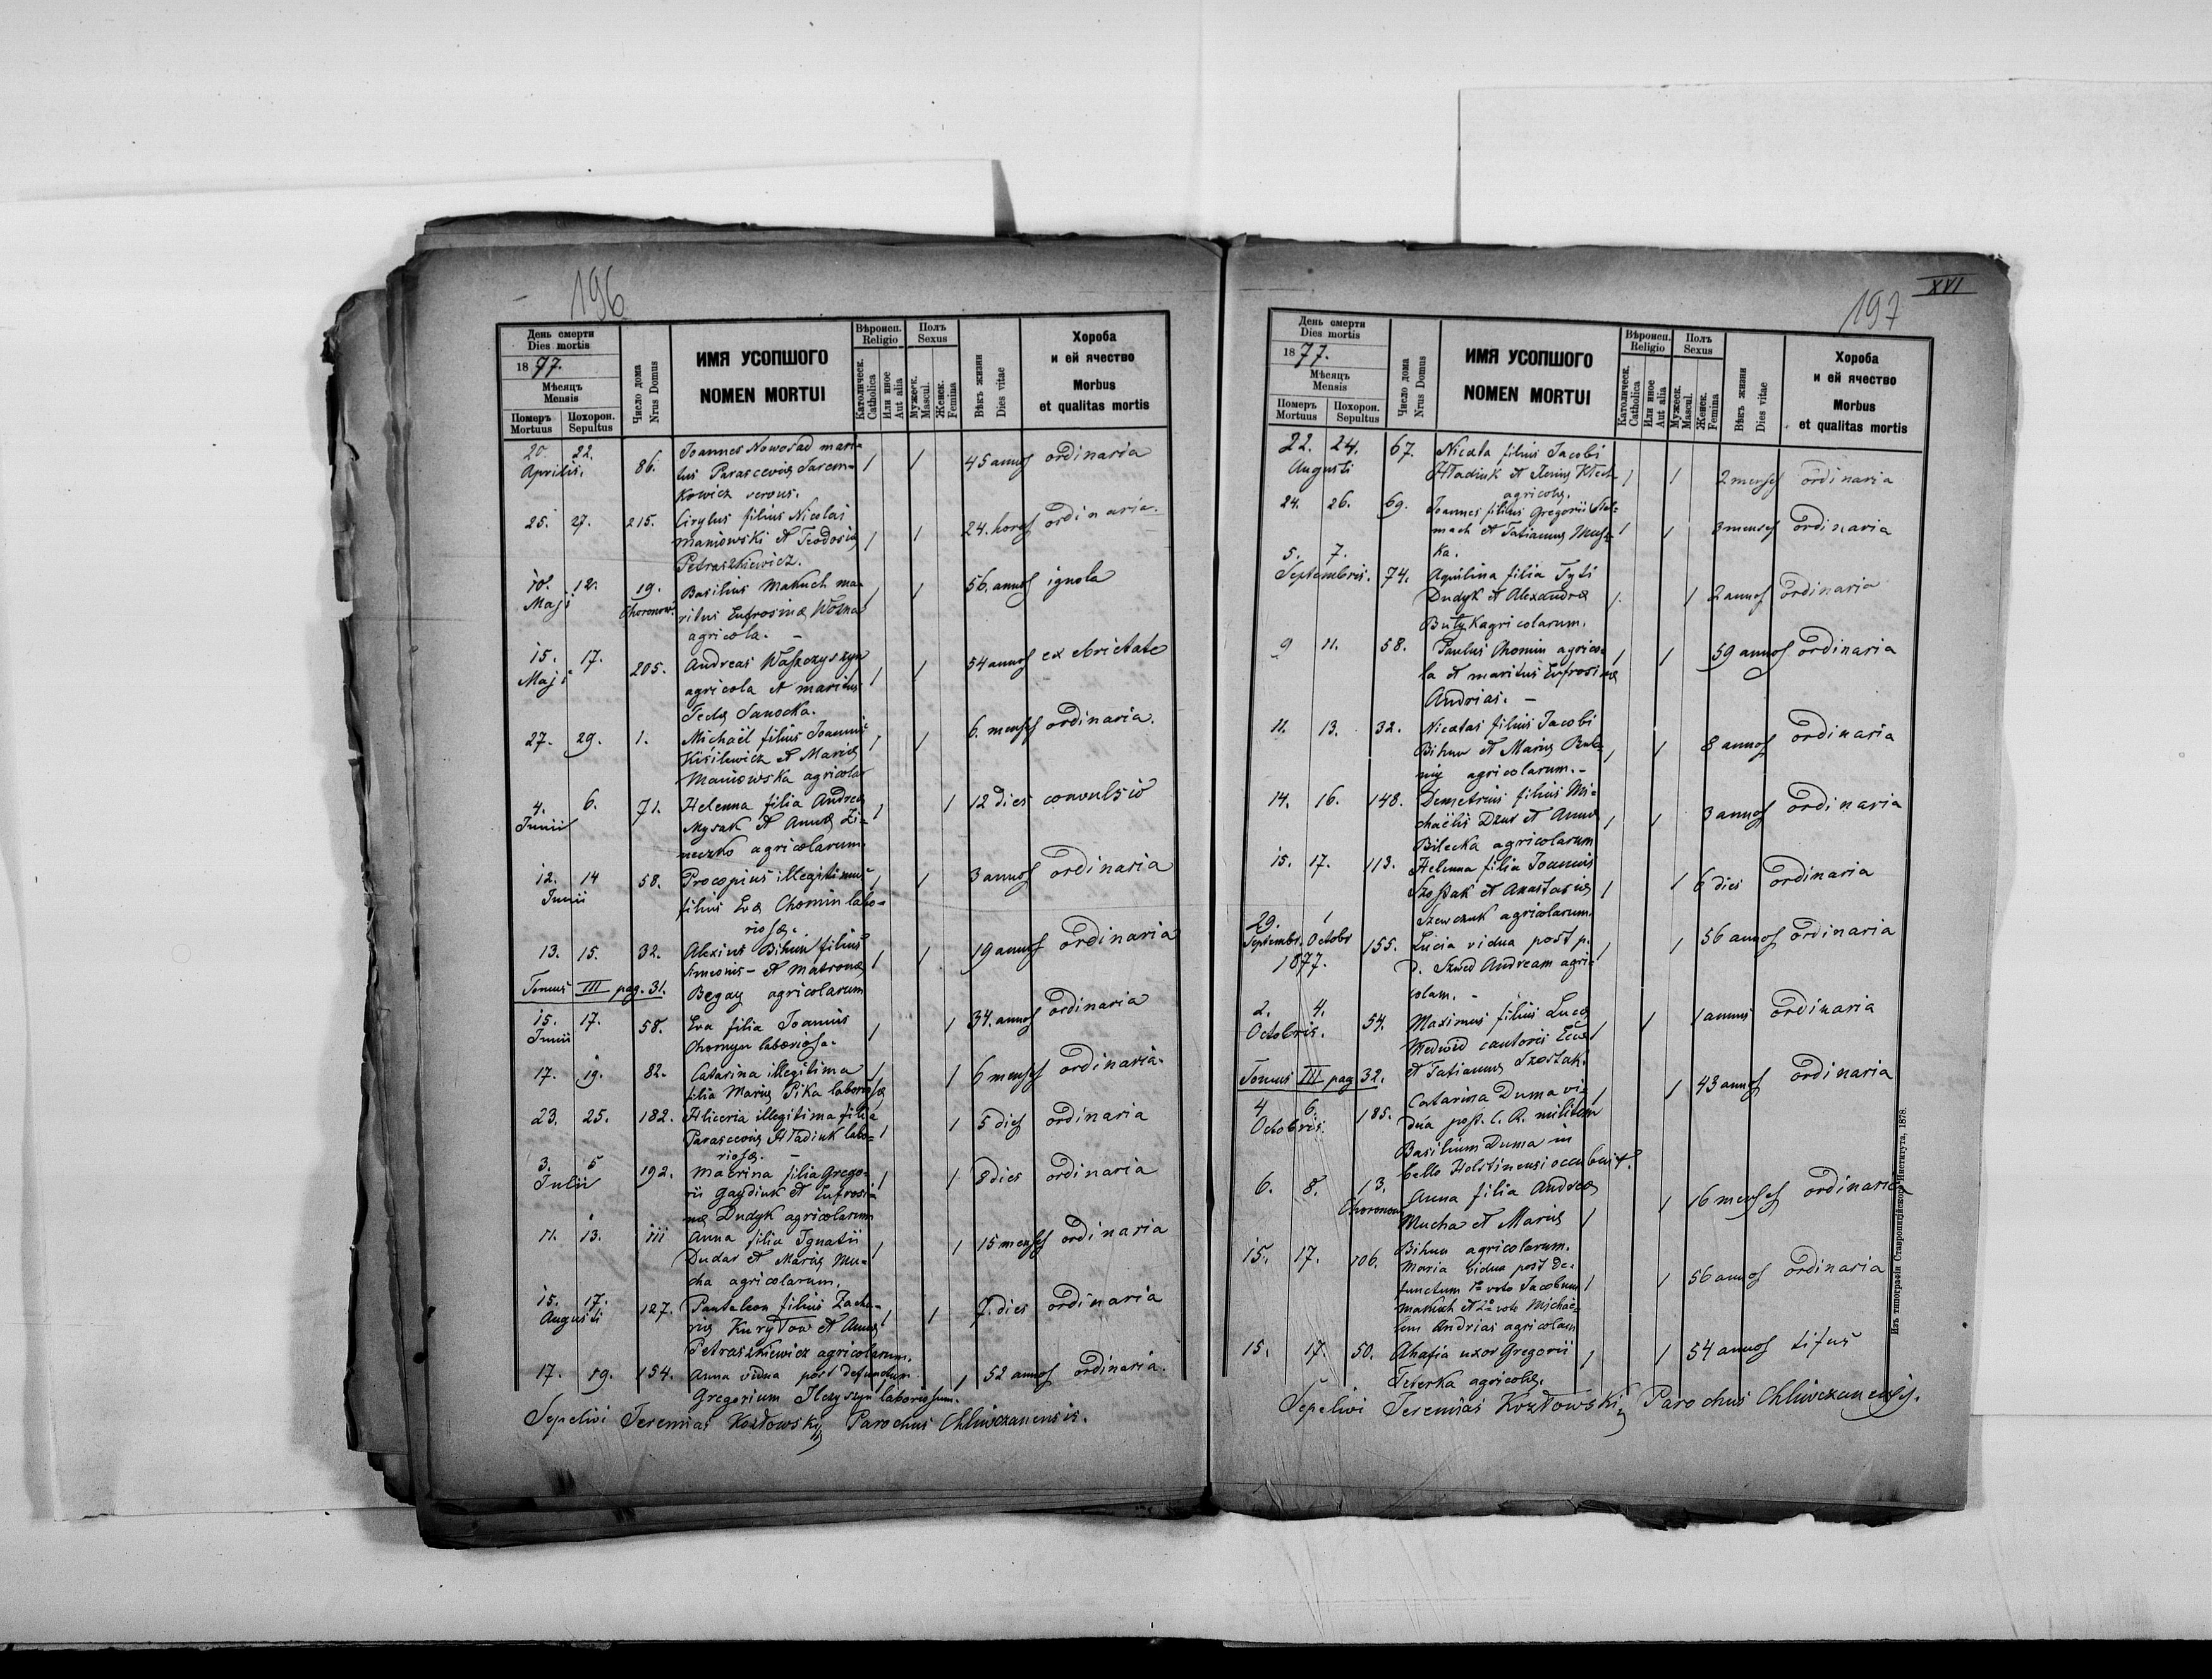 196
День смерти
Dies mortis
1877.
Мѣсяцъ
Mensis
Померъ
Mortuus
Похорон.
Sepultus
Число дома
Nrus Domus
ИМЯ УСОПШОГО
NOMEN MORTUI
Вѣроисп.
Religio
Католическ.
Catholica
Или иное
Aut alia
Полъ
Sexus
Мужеск.
Mascul.
Женск.
Femina
Вѣкъ жизни
Dies vitae
Хороба
и ей ячество
Morbus
et qualitas mortis
20. 22. Aprilis. 86. Joannes Nowosad mari-
tus Parasceviæ Jarem- 1 1 45 annos ordinaria
kowicz servus.
25. 27. 215. Cirylus filius Nicolai
Maniowski et Teodosiæ 1 1 24. horas ordinaria.
Petraszkiewicz.
10. 12. Maji 19. Choronow. Basilius Makuch ma-
ritus Eufrosinæ Wolna 1 1 56. annos ignota
agricola. -
15. 17. Maji 205. Andreas Waszczyszyn
agricola et maritus 1 1 54 annos ex ebrietate
Teclæ Sanocka.
27. 29. 1. Michaël filius Joannis
Kisilewicz et Mariæ 1 1 6. menses ordinaria.
Maniowska agricolar
4. 6. Junii 71. Helenna filia Andreæ
Mysak et Annæ Zi- 1 1 12 dies convulsio
neczko agricolarum.
12. 14 Junii 58. Procopius illegitimus
filius Evæ Chomin labo- 1 1 3 annos ordinaria
riosæ.
13. 15. 32. Alexius Bihun filius
Simeonis - et Matronæ 1 1 19 annos ordinaria
Tomus III pag. 31. Begay agricolarum
15. 17. Junii 58. Eva filia Joannis
Chomyn laboriosa. 1 1 34. annos ordinaria
17. 19. 82. Catarina illegitima
filia Mariæ Pika laboriosæ 1 1 6 menses ordinaria.
23. 25. 182. Hliceria illegitima filia
Parasceviæ Hładiuk labo- 1 1 5 dies ordinaria
riosæ. -
3. 5 Julii 192. Macrina filia Grego-
rii Gaydiuk et Eufrosi- 1 1 8 dies ordinaria
næ Dudyk agricolarum
11. 13. 111 Anna filia Ignatii
Dudar et Mariæ Mu- 1 1 15 menses ordinaria
cha agricolarum.
15. 17. Augusti 127. Pantaleon filius Zacha-
riæ Kuryłow et Annæ 1 1 7. dies ordinaria
Petraszkiewicz agricolarum.
17. 19. 154. Anna vidua post defunctum 1 52 annos ordinaria.
Gregorium Ilczyszyn laboriosum.
Sepelivi Jeremias Kozłowskij Parochus Chliwczanensis.
XVI
197
День смерти
Dies mortis
1877.
Мѣсяцъ
Mensis
Померъ
Mortuus
Похорон.
Sepultus
Число дома
Nrus Domus
ИМЯ УСОПШОГО
NOMEN MORTUI
Вѣроисп.
Religio
Католическ.
Catholica
Или иное
Aut alia
Полъ
Sexus
Мужеск.
Mascul.
Женск.
Femina
Вѣкъ жизни
Dies vitae
Хороба
и ей ячество
Morbus
et qualitas mortis
22. 24. Augusti 67. Nicata filius Jacobi
Hładiuk et Xeniæ 1 1 2 menses ordinaria
agricolæ.
24. 26. 69. Joannes filius Gregorii Stel-
mach et Tatiannæ 1 1 3 menses ordinaria
ka.
5. 7. Septembris. 74. Aquilina filia Tyti
Dudyk et Alexandræ 1. 1 2 annos ordinaria
agricolarum.
9 11. 58. Paulus Chomin agrico-
la et maritus Eufrosinæ 1 1 59 annos ordinaria
Andrias. -
11. 13. 32. Nicatas filius Jacobi
Bihun et Mariæ 1 1 8 annos ordinaria
agricolarum. -
14. 16. 148. Demetrius filius Mi-
chaëlis Dzus et Annæ 1 1 3 annos ordinaria
Bilecka agricolarum
15. 17. 113. Helenna filia Joannis
Szostak et Anastasiæ 1 1 6 dies ordinaria
Szewczuk agricolarum.
29. 1 Septembr. Octobr 1877. 155. Lucia vidua post p.
d. Szwed Andream agri- 1 1 56 annos ordinaria
colam. -
2. 4. Octobris. 54. Maximus filius Lucæ
Medwid cantoris Eccl 1 1 1 annus ordinaria
et Tatiannæ Szostak.
Tomus III pag 32.
4 6. Octobris. 185. Catarina Duma vi-
dua post. C. R. militem 1 1 43 annos ordinaria
Basilium Duma in
bello Holstinensi occubuit.
6. 8. 13. Choronow Anna filia Andreæ
Mucha et Mariæ 1 1 16 menses ordinaria
Bihun agricolarum.
15. 17. 106. Maria vidua post de-
functum 1o voto Jacobum 1 1 56 annos ordinaria
Makuch et 2o voto Michaë-
lem Andrias agricolam
15. 17. 50. Ahafia uxor Gregorii
Teterka agricolæ. 1 1 54 annos tifus
Sepelivi Jeremias Kozłowskij Parochus Chliwczanensis.
Изъ типографіи Ставропигійского Института, 1878.